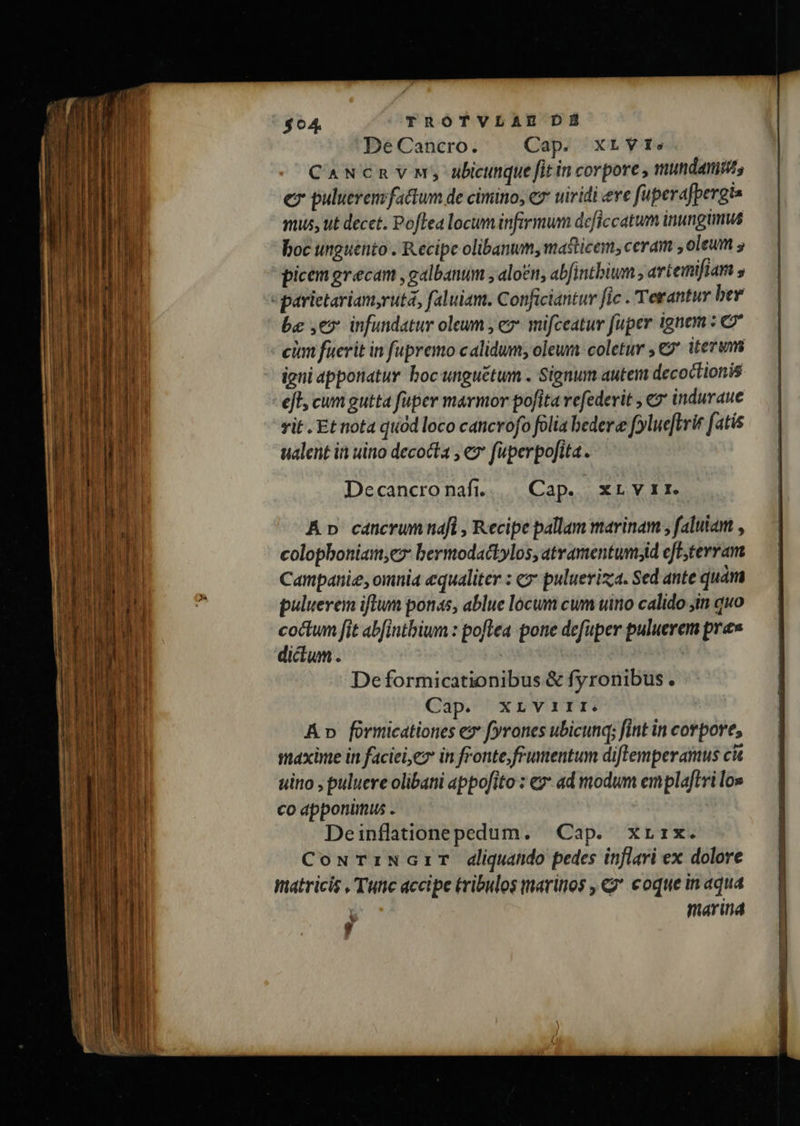 504 TROTVLAE DE
De Cancro. Cap. XLVI.
CANCRVM, ubicunque fit in corpore, mundamus,
& puluerem factum de cimino, & uiridi ære superaspergi=
mus, ut decet. Postea locum infirmum desiccatum inungimus
hoc unguento. Recipe olibanum, masticem, ceram, oleum,
picem græcam, galbanum, aloën, absinthium, artemisiam,
parietariam, rutã, saluiam. Conficiantur sic. Terantur her
bæ, & infundatur oleum, & misceatur super ignem: &
cùm fuerit in supremo calidum, oleum coletur, & iterum
igni apponatur hoc unguẽtum. Signum autem decoctionis
est, cum gutta super marmor posita resederit, & induraue
rit. Et nota quòd loco cancroso folia hederæ syluestris satis
ualent in uino decocta, & superposita.
De cancro nasi. Cap. XLVII.
AD cancrum nasi, Recipe pallam marinam, saluiam,
colophoniam, & hermodactylos, atramentum, id est, terram
Campaniæ, omnia æqualiter: & pulueriza. Sed ante quàm
puluerem istum ponas, ablue locum cum uino calido, in quo
coctum sit absinthium: postea pone desuper puluerem præ=
dictum.
De formicationibus & syronibus.
Cap. XLVIII.
AD formicationes & syrones ubicunq; sint in corpore,
maxime in faciei, & in fronte, frumentum distemperamus cũ
uino, puluere olibani apposito: & ad modum emplastri lo=
co apponimus.
De inflatione pedum. Cap. XLIX.
CONTINGIT aliquando pedes inflari ex dolore
matricis. Tunc accipe tribulos marinos, & coque in aqua
marina